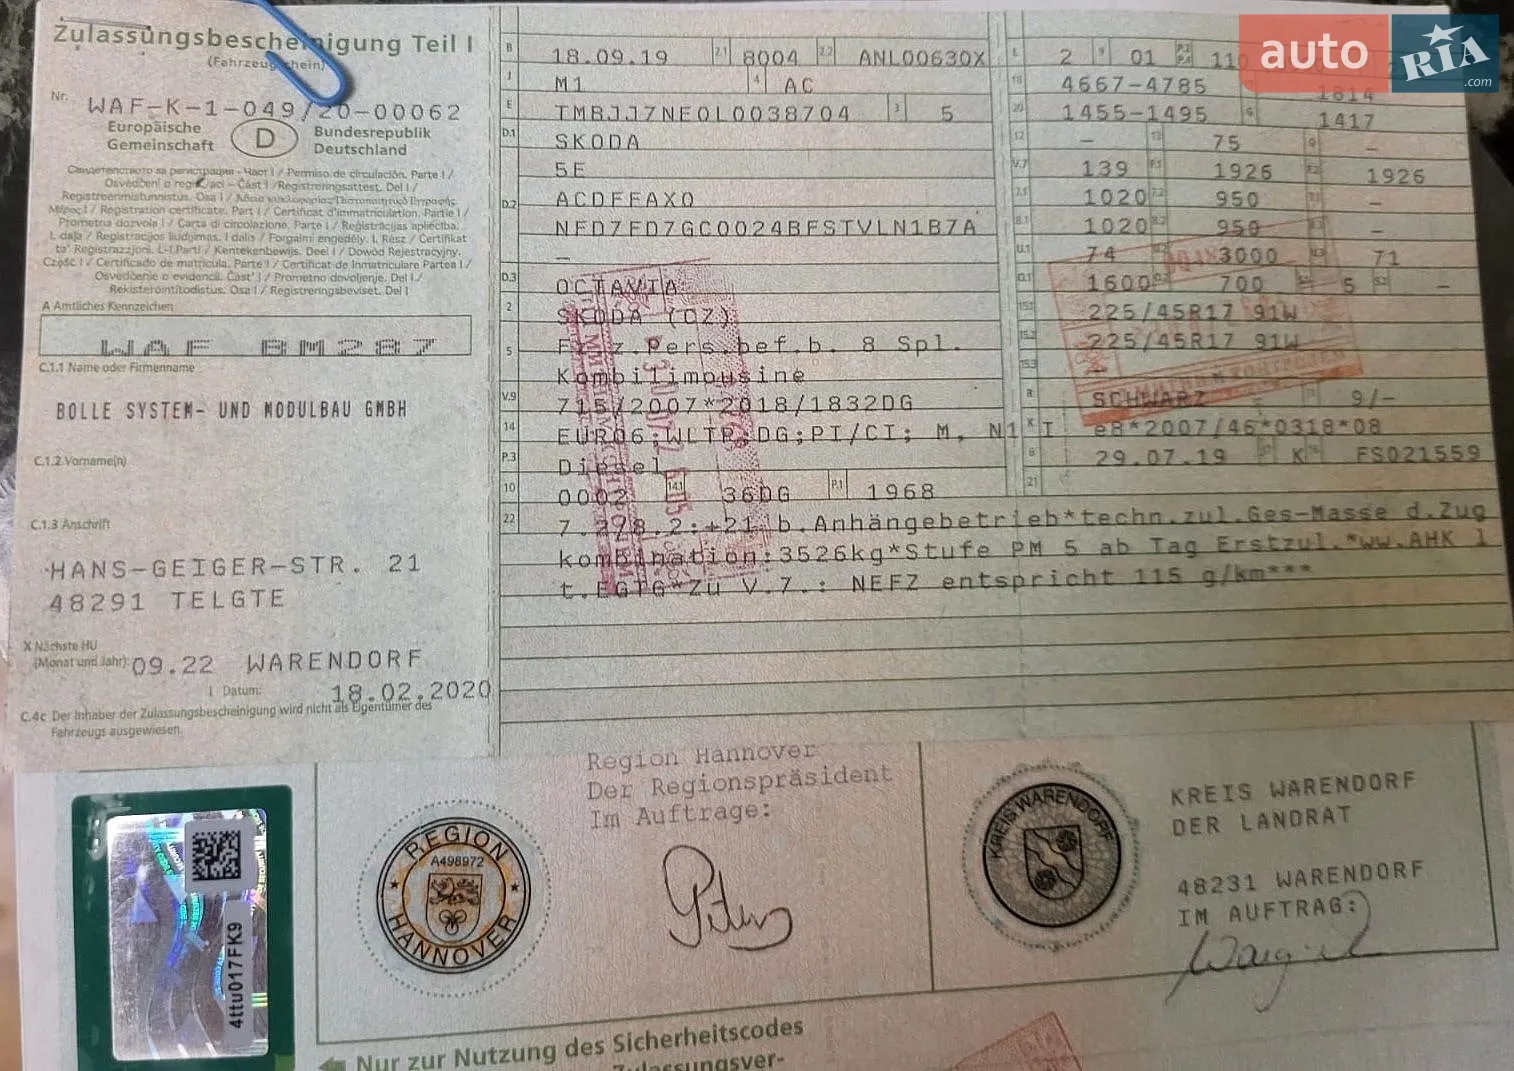 Zulassungsbescheinigung Teil I
(Fahrzeugschein)
Nr. WAF-K-1-049/20-00062
Europäische Gemeinschaft
D
Bundesrepublik Deutschland
Свидетелството за регистрация - Част I / Permiso de circulación. Parte I /
Osvědčení o registraci - Část I / Registreringsattest. Del I /
Mέρος I / Registration certificate. Part I / Certificat d'immatriculation. Partie I /
Prometna dozvola I / Carta di circolazione. Parte I / Reģistrācijas apliecība.
I. daļa / Registracijos liudijimas. I dalis / Forgalmi engedély. I. Rész / Certifikat
ta' Registrazzjoni. L-I Parti / Kentekenbewijs. Deel I / Dowód Rejestracyjny.
Część I / Certificado de matrícula. Parte I / Certificat de înmatriculare Partea I /
Osvedčenie o evidencii. Časť I / Prometno dovoljenje. Del I /
Rekisteröintitodistus. Osa I / Registreringsbeviset. Del I
A Amtliches Kennzeichen
WAF BM287
C.1.1 Name oder Firmenname
BOLLE SYSTEM- UND MODULBAU GMBH
C.1.2 Vorname(n)
C.1.3 Anschrift
HANS-GEIGER-STR. 21
48291 TELGTE
X Nächste HU
(Monat und Jahr): 09.22 WARENDORF
I Datum: 18.02.2020
C.4c Der Inhaber der Zulassungsbescheinigung wird nicht als Eigentümer des
Fahrzeugs ausgewiesen.
B 18.09.19 2.1 8004 2.2 ANL00630X
J M1 4 AC
E TMBJJ7NE0L0038704 3 5
D.1 SKODA
5E
D.2 ACDFFAX0
NFD7FD7GC0024BFSTVLN1B7A
–
D.3 OCTAVIA
2 SKODA (CZ)
5 Fz.z.Pers.bef.b. 8 Spl.
Kombilimousine
V.9 715/2007*2018/1832DG
14 EURO6;WLTP;DG;PI/CI; M, N1 I
P.3 Diesel
10 0002 14.1 36DG P.1 1968
22 7.2/8.2:+21 b.Anhängebetrieb*techn.zul.Ges-Masse d.Zug
kombination:3526kg*Stufe PM 5 ab Tag Erstzul.*ww.AHK l
t.EGTG*Zu V.7.: NEFZ entspricht 115 g/km***
L 2 9 01 P.2 P.4 110
18 4667-4785 1814
20 1455-1495 G 1417
12 – 13 75 Q –
V.7 139 F.1 1926 F.2 1926
7.1 1020 7.2 950 7.3 –
8.1 1020 8.2 950 –
U.1 74 U.2 3000 U.3 71
O.1 1600 O.2 700 S.1 5 S.2 –
15.1 225/45R17 91W
15.2 225/45R17 91W
15.3
R SCHWARZ 11 9/–
K e8*2007/46*0318*08
6 29.07.19 17 K 16 FS021559
21
auto RIA .com
Region Hannover
Der Regionspräsident
Im Auftrage:
REGION
A498972
HANNOVER
KREIS WARENDORF
KREIS WARENDORF
DER LANDRAT
48231 WARENDORF
IM AUFTRAG:
4ttu017FK9
Nur zur Nutzung des Sicherheitscodes